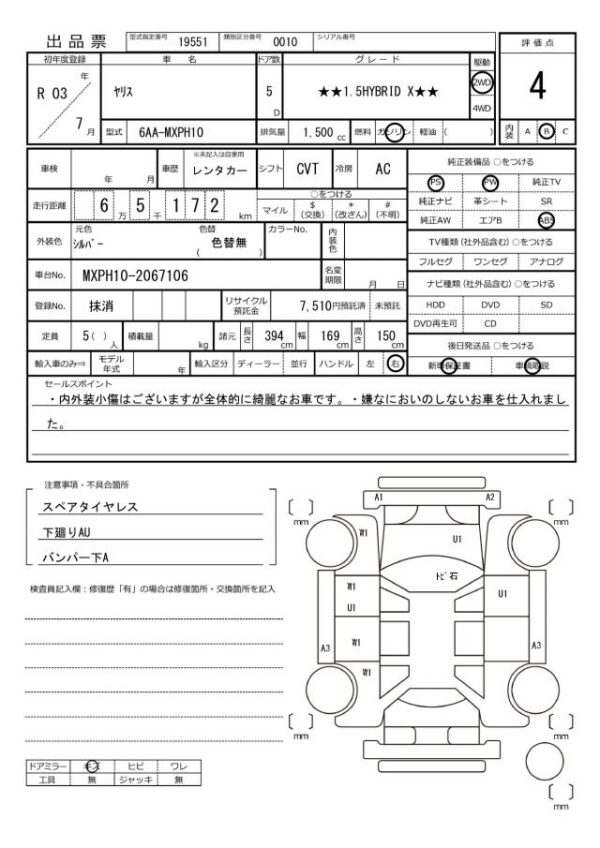 出品票 型式指定番号 19551 類別区分番号 0010 シリアル番号
評価点
初年度登録 車名 ドア数 グレード 駆動
R 03 年 7 月 ﾔﾘｽ 5 D ★★1.5HYBRID X★★ 2WD 4WD
4
型式 6AA-MXPH10 排気量 1,500 cc 燃料 ガソリン 軽油 ( ) 内装 A B C
車検 年 月 車歴 ※未記入は自家用 レンタカー シフト CVT 冷房 AC
純正装備品 ○をつける
PS PW 純正TV
走行距離 6 万 5 千 1 7 2 km ○をつける マイル $(交換) *(改ざん) #(不明)
純正ナビ 革シート SR
純正AW エアB ABS
外装色 元色 ｼﾙﾊﾞｰ 色替 色替無 ( ) カラーNo. 内装色
TV種類(社外品含む)○をつける
フルセグ ワンセグ アナログ
車台No. MXPH10-2067106 名変期限 月 日
ナビ種類(社外品含む)○をつける
登録No. 抹消 リサイクル預託金 7,510円預託済 未預託
HDD DVD SD
DVD再生可 CD
定員 5( ) 人 積載量 kg 諸元 長さ 394 cm 幅 169 cm 高さ 150 cm
後日発送品 ○をつける
輸入車のみ⇒ モデル年式 年 輸入区分 ディーラー 並行 ハンドル 左 右
新車保証書 車輌取説
セールスポイント
・内外装小傷はございますが全体的に綺麗なお車です。・嫌なにおいのしないお車を仕入れまし
た。
注意事項・不具合箇所
スペアタイヤレス
下廻りAU
バンパー下A
検査員記入欄：修復歴「有」の場合は修復箇所・交換箇所を記入
A1 A2
mm mm
W1 U1
ﾄﾋﾞ石
W1 U1
U1
A3 W1 A3
W1
mm mm
mm
ドアミラー キズ ヒビ ワレ
工具 無 ジャッキ 無